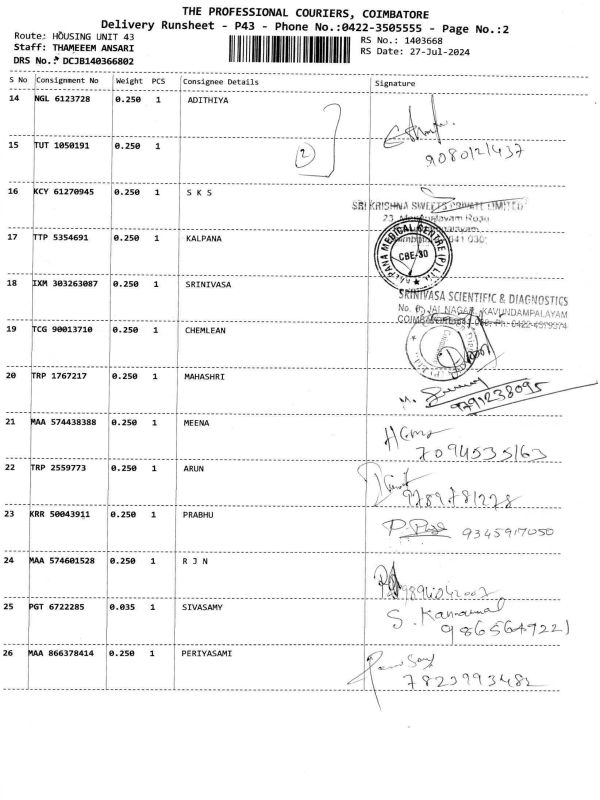 THE PROFESSIONAL COURIERS, COIMBATORE
Delivery Runsheet - P43 - Phone No.:0422-3505555 - Page No.:2
Route: HOUSING UNIT 43
RS No.: 1403668
Staff: THAMEEEM ANSARI
RS Date: 27-Jul-2024
DRS No.: DCJB140366802
S No Consignment No Weight PCS Consignee Details Signature
14 NGL 6123728 0.250 1 ADITHIYA
9080121437
15 TUT 1050191 0.250 1
2
16 KCY 61270945 0.250 1 S K S
SRI KRISHNA SWEETS PRIVATE LIMITED
17 TTP 5354691 0.250 1 KALPANA
KALPANA MEDICAL CENTRE (P) Ltd.
CBE-30
18 IXM 303263087 0.250 1 SRINIVASA
SRINIVASA SCIENTIFIC & DIAGNOSTICS
JAI NAGAR, KAVUNDAMPALAYAM
19 TCG 90013710 0.250 1 CHEMLEAN
20 TRP 1767217 0.250 1 MAHASHRI
9791238095
21 MAA 574438388 0.250 1 MEENA
7094535163
22 TRP 2559773 0.250 1 ARUN
9789781278
23 KRR 50043911 0.250 1 PRABHU
9345917050
24 MAA 574601528 0.250 1 R J N
25 PGT 6722285 0.035 1 SIVASAMY
S. Kannammal
9865647221
26 MAA 866378414 0.250 1 PERIYASAMI
7823993482